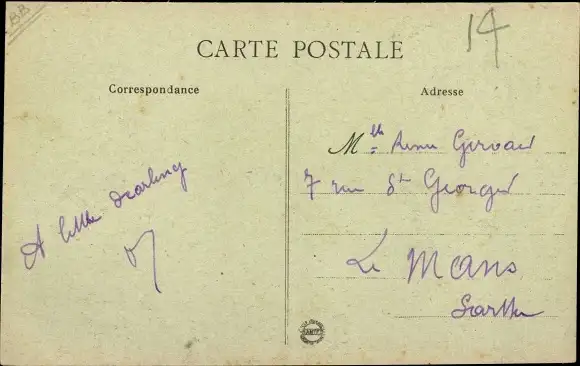 BB
14
CARTE POSTALE
Correspondance
Adresse
A little darling
Mlle Gervais
7 rue St Georges
Le Mans
Sarthe